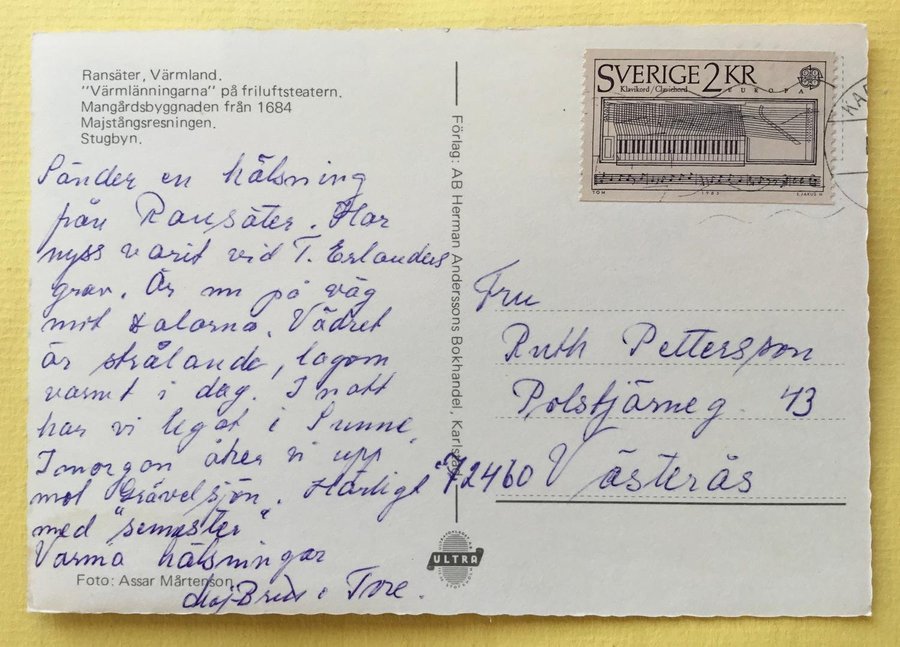 Ransäter, Värmland.
"Värmlänningarna" på friluftsteatern.
Mangårdsbyggnaden från 1684
Majstångsresningen.
Stugbyn.
Sänder en hälsning
från Ransäter. Har
nyss varit vid T. Erlanders
grav. Är nu på väg
mot Dalarna. Vädret
är strålande, lagom
varmt i dag. I natt
har vi legat i Sunne
Imorgon åker vi upp
mot Grävelsjön. Härligt
med "semester"
Varma hälsningar
Maj-Britt o Tore.
Foto: Assar Mårtenson
Förlag: AB Herman Anderssons Bokhandel, Karlstad
ULTRA
SVERIGE 2 KR
Klavikord / Clavichord
EUROPA
1985
KAR
Fru
Ruth Pettersson
Polstjärneg. 43
72460 Västerås